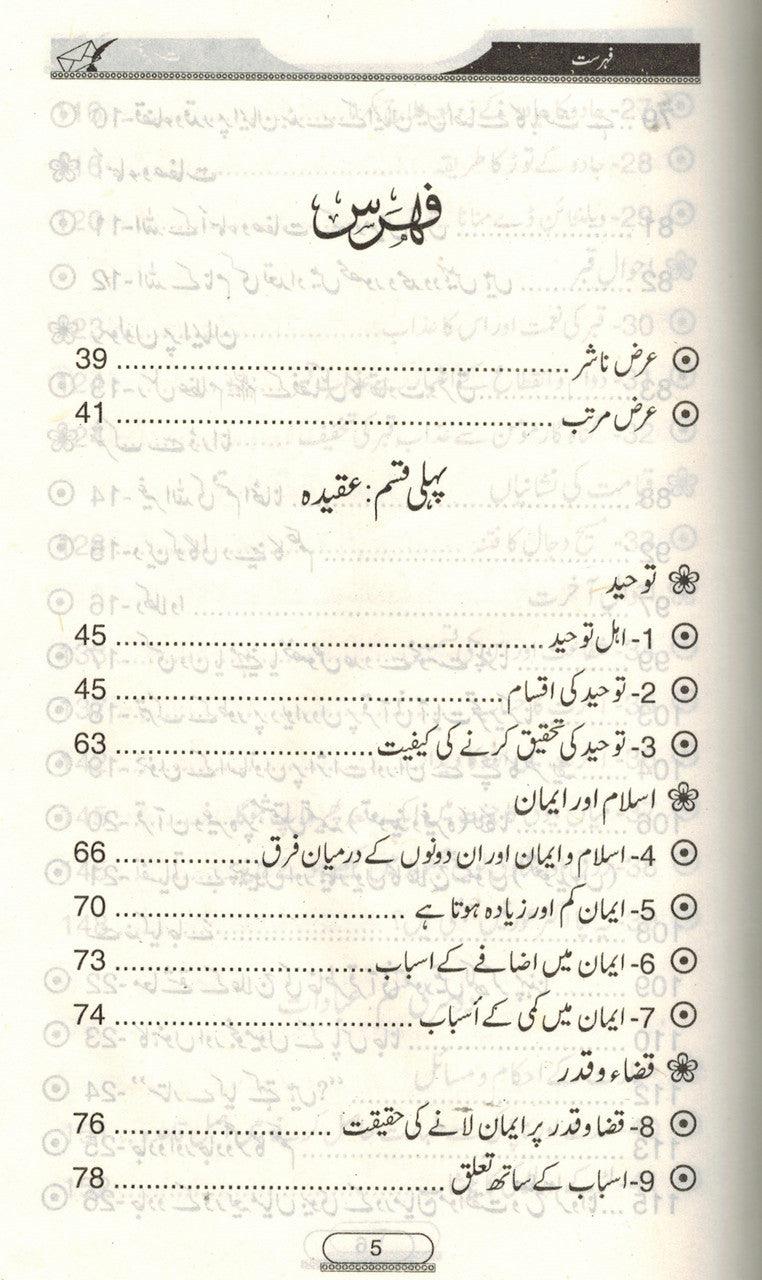 فہرست
فہرس
عرض ناشر ........................................ 39
عرض مرتب ........................................ 41
پہلی قسم: عقیدہ
توحید
1- اہل توحید ........................................ 45
2- توحید کی اقسام ........................................ 45
3- توحید کی تحقیق کرنے کی کیفیت ........................................ 63
اسلام اور ایمان
4- اسلام و ایمان اور ان دونوں کے درمیان فرق ................. 66
5- ایمان کم اور زیادہ ہوتا ہے ........................................ 70
6- ایمان میں اضافے کے اسباب ........................................ 73
7- ایمان میں کمی کے أسباب ........................................ 74
قضاء و قدر
8- قضا و قدر پر ایمان لانے کی حقیقت ............................ 76
9- اسباب کے ساتھ تعلق ........................................ 78
5